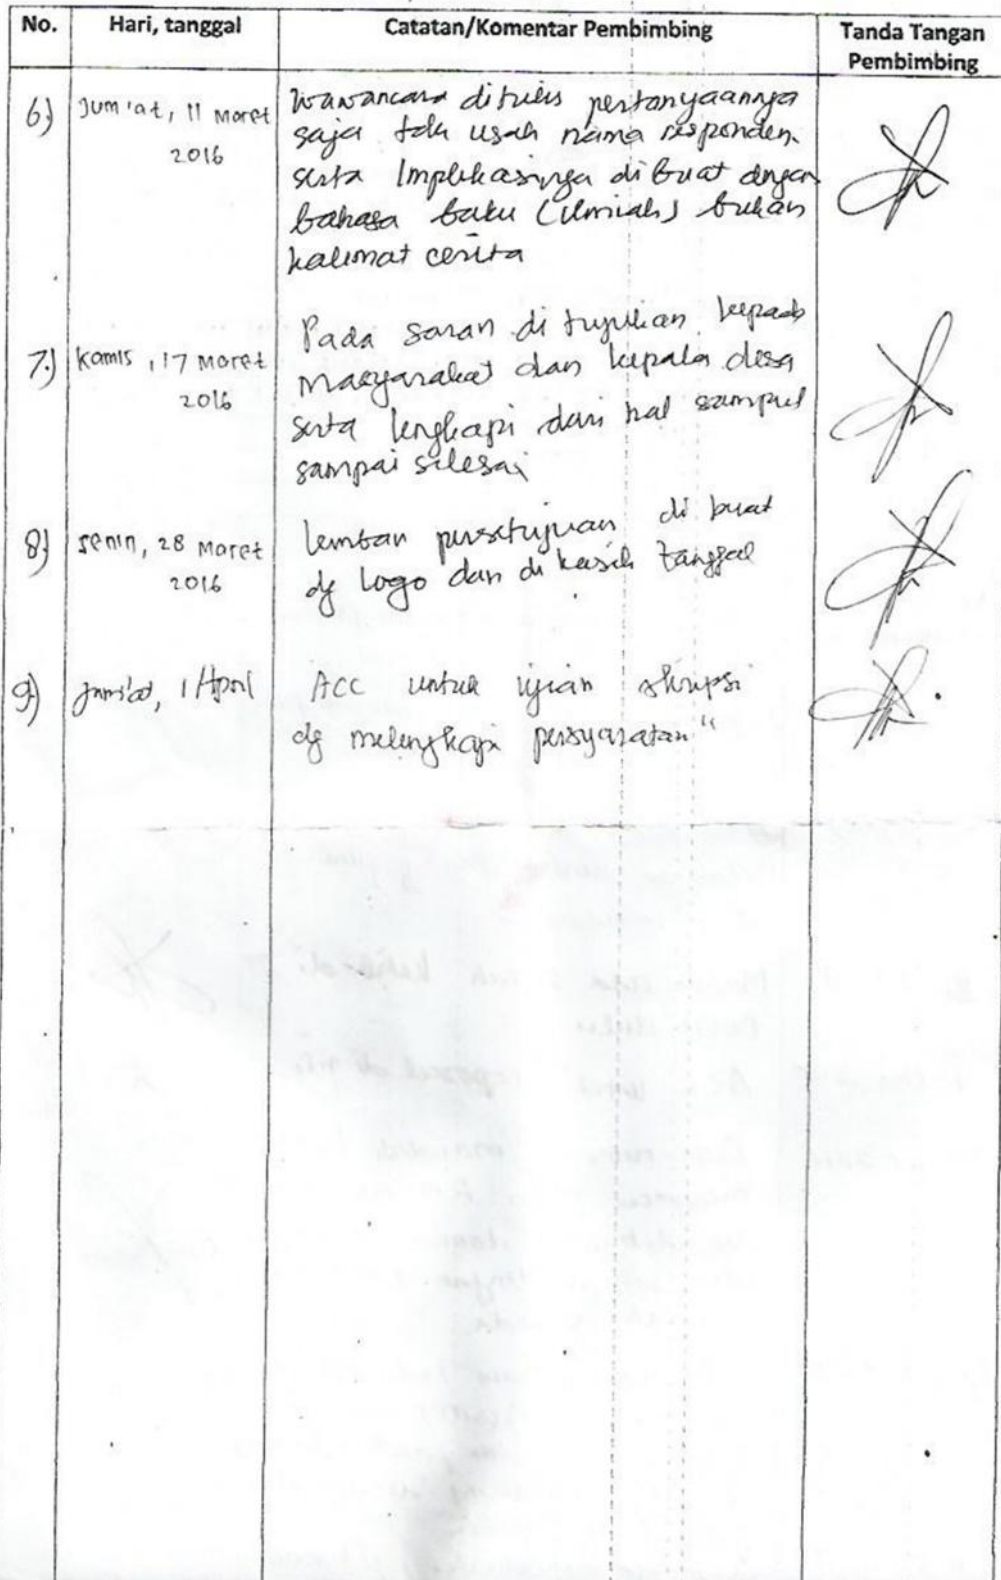 No. Hari, tanggal Catatan/Komentar Pembimbing Tanda Tangan
Pembimbing
6.) Jum'at, 11 Maret
2016
Wawancara ditulis pertanyaannya
saja tdk usah nama responden
serta Implikasinya di buat dengan
bahasa baku (ilmiah) bukan
kalimat cerita
7.) Kamis, 17 Maret
2016
Pada saran di tujukan kepada
masyarakat dan kepala desa
serta lengkapi dari hal sampul
sampai selesai
8.) Senin, 28 Maret
2016
lembar persetujuan di buat
dg logo dan di kasih tanggal
9.) Jum'at, 1 April
ACC untuk ujian skripsi
dg melengkapi persyaratan"